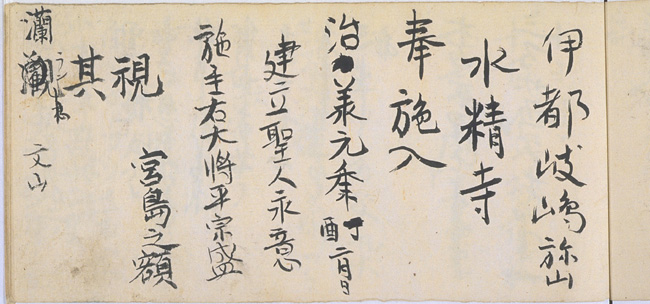 伊都岐嶋弥山
水精寺
奉施入
治承元季 丁酉 二月日
建立聖人永意
施主右大将平宗盛
宮島之額
視
其
瀾
文山